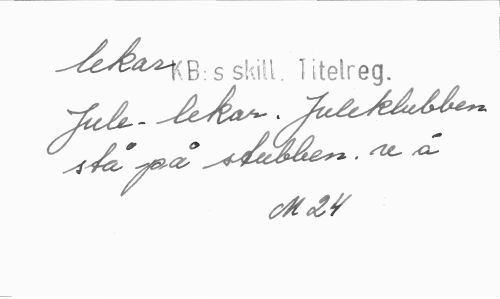 lekar KB:s skill. Titelreg.
Jule-lekar. Juleklubben
stå på stubben. u å
M 24